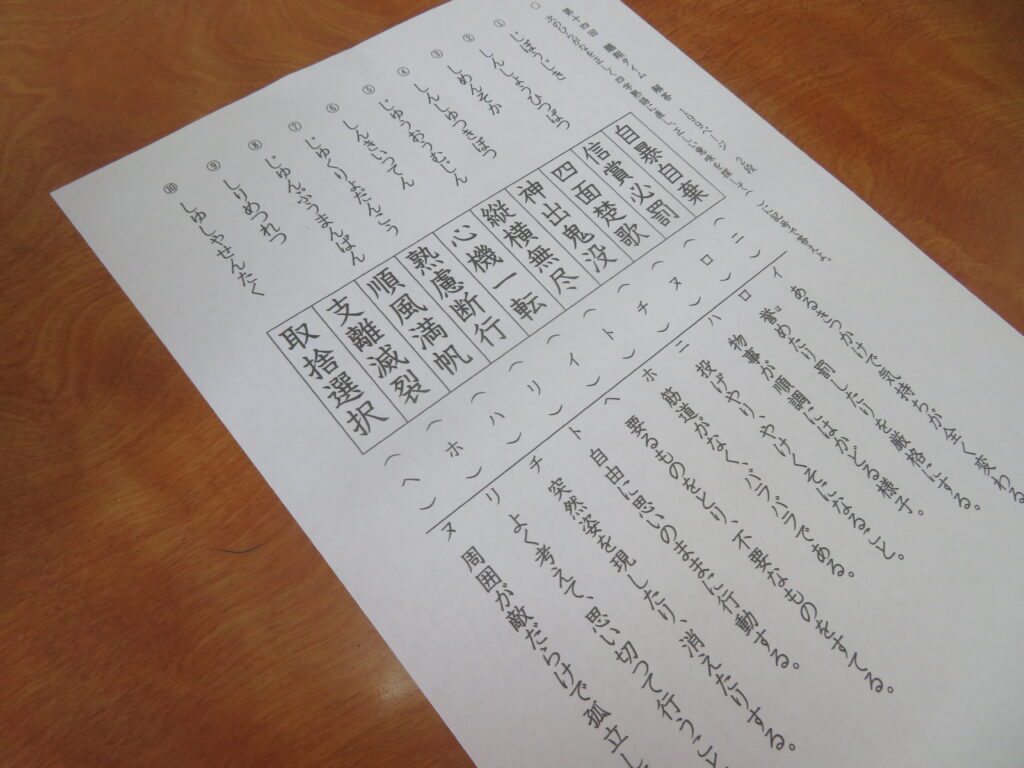 第十四回 職能タイム 解答 169ページ 2段
○ 次のひらがなを正しく四字熟語に直し、正しい意味を探して( )に記号で答えよ。
① じぼうじき 自暴自棄 (ニ)
② しんしょうひつばつ 信賞必罰 (ロ)
③ しめんそか 四面楚歌 (ヌ)
④ しんしゅつきぼつ 神出鬼没 (チ)
⑤ じゅうおうむじん 縦横無尽 (ト)
⑥ しんきいってん 心機一転 (イ)
⑦ じゅくりょだんこう 熟慮断行 (リ)
⑧ じゅんぷうまんぱん 順風満帆 (ハ)
⑨ しりめつれつ 支離滅裂 (ホ)
⑩ しゅしゃせんたく 取捨選択 (ヘ)
イ あるきっかけで気持ちが全く変わる
ロ 誉めたり罰したりを厳格にする。
ハ 物事が順調にはかどる様子。
ニ 投げやり、やけくそになること。
ホ 筋道がなくバラバラである。
ヘ 要るものをとり、不要なものをすてる。
ト 自由に思いのままに行動する。
チ 突然姿を現したり、消えたりする。
リ よく考えて、思い切って行うこと
ヌ 周囲が敵だらけで孤立し